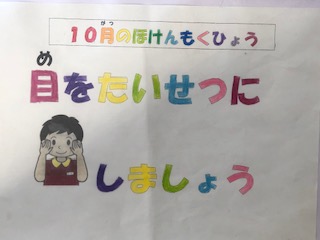 がつ
10月のほけんもくひょう
め
目をたいせつに
しましょう